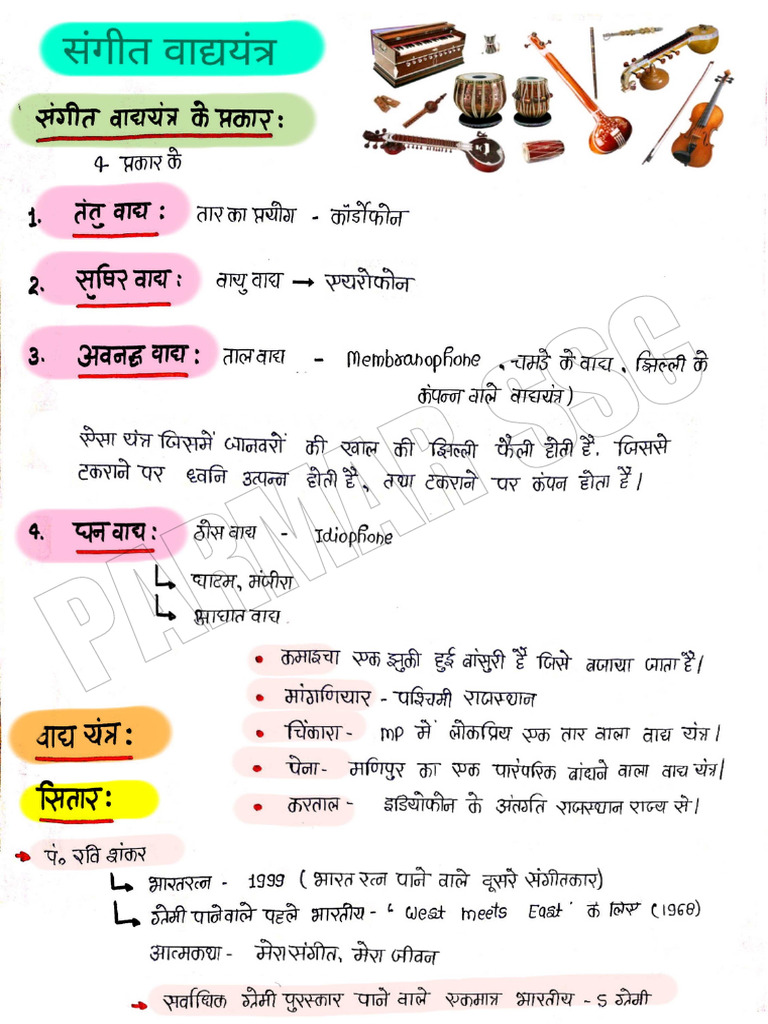 संगीत वाद्ययंत्र
संगीत वाद्ययंत्र के प्रकार :
4 प्रकार के
1. तंतु वाद्य : तार का प्रयोग - कॉर्डोफोन
2. सुषिर वाद्य : वायु वाद्य → एयरोफोन
3. अवनद्ध वाद्य : ताल वाद्य - Membranophone , चमडे के वाद्य , झिल्ली के
कंपन्न वाले वाद्ययंत्र )
ऐसा यंत्र जिसमें जानवरों की खाल की झिल्ली फैली होती है. जिससे
टकराने पर ध्वनि उत्पन्न होती है, तथा टकराने पर कंपन होता है।
4. घन वाद्य : ठोस वाद्य - Idiophone
घाटम, मंजीरा
आघात वाद्य
• कमाइचा एक झुकी हुई बांसुरी है जिसे बजाया जाता है।
• मांगणियार - पश्चिमी राजस्थान
• चिंकारा - MP में लोकप्रिय एक तार वाला वाद्य यंत्र।
• पेना - मणिपुर का एक पारंपरिक बांधने वाला वाद्य यंत्र।
• करताल - इडियोफोन के अंतर्गत राजस्थान राज्य से।
वाद्य यंत्र :
सितार :
पं० रवि शंकर
भारतरत्न - 1999 ( भारत रत्न पाने वाले दूसरे संगीतकार)
ग्रेमी पाने वाले पहले भारतीय - ' West meets East ' के लिए (1968)
आत्मकथा - मेरा संगीत, मेरा जीवन
सर्वाधिक ग्रेमी पुरस्कार पाने वाले एकमात्र भारतीय - 5 ग्रेमी
PARMAR SSC